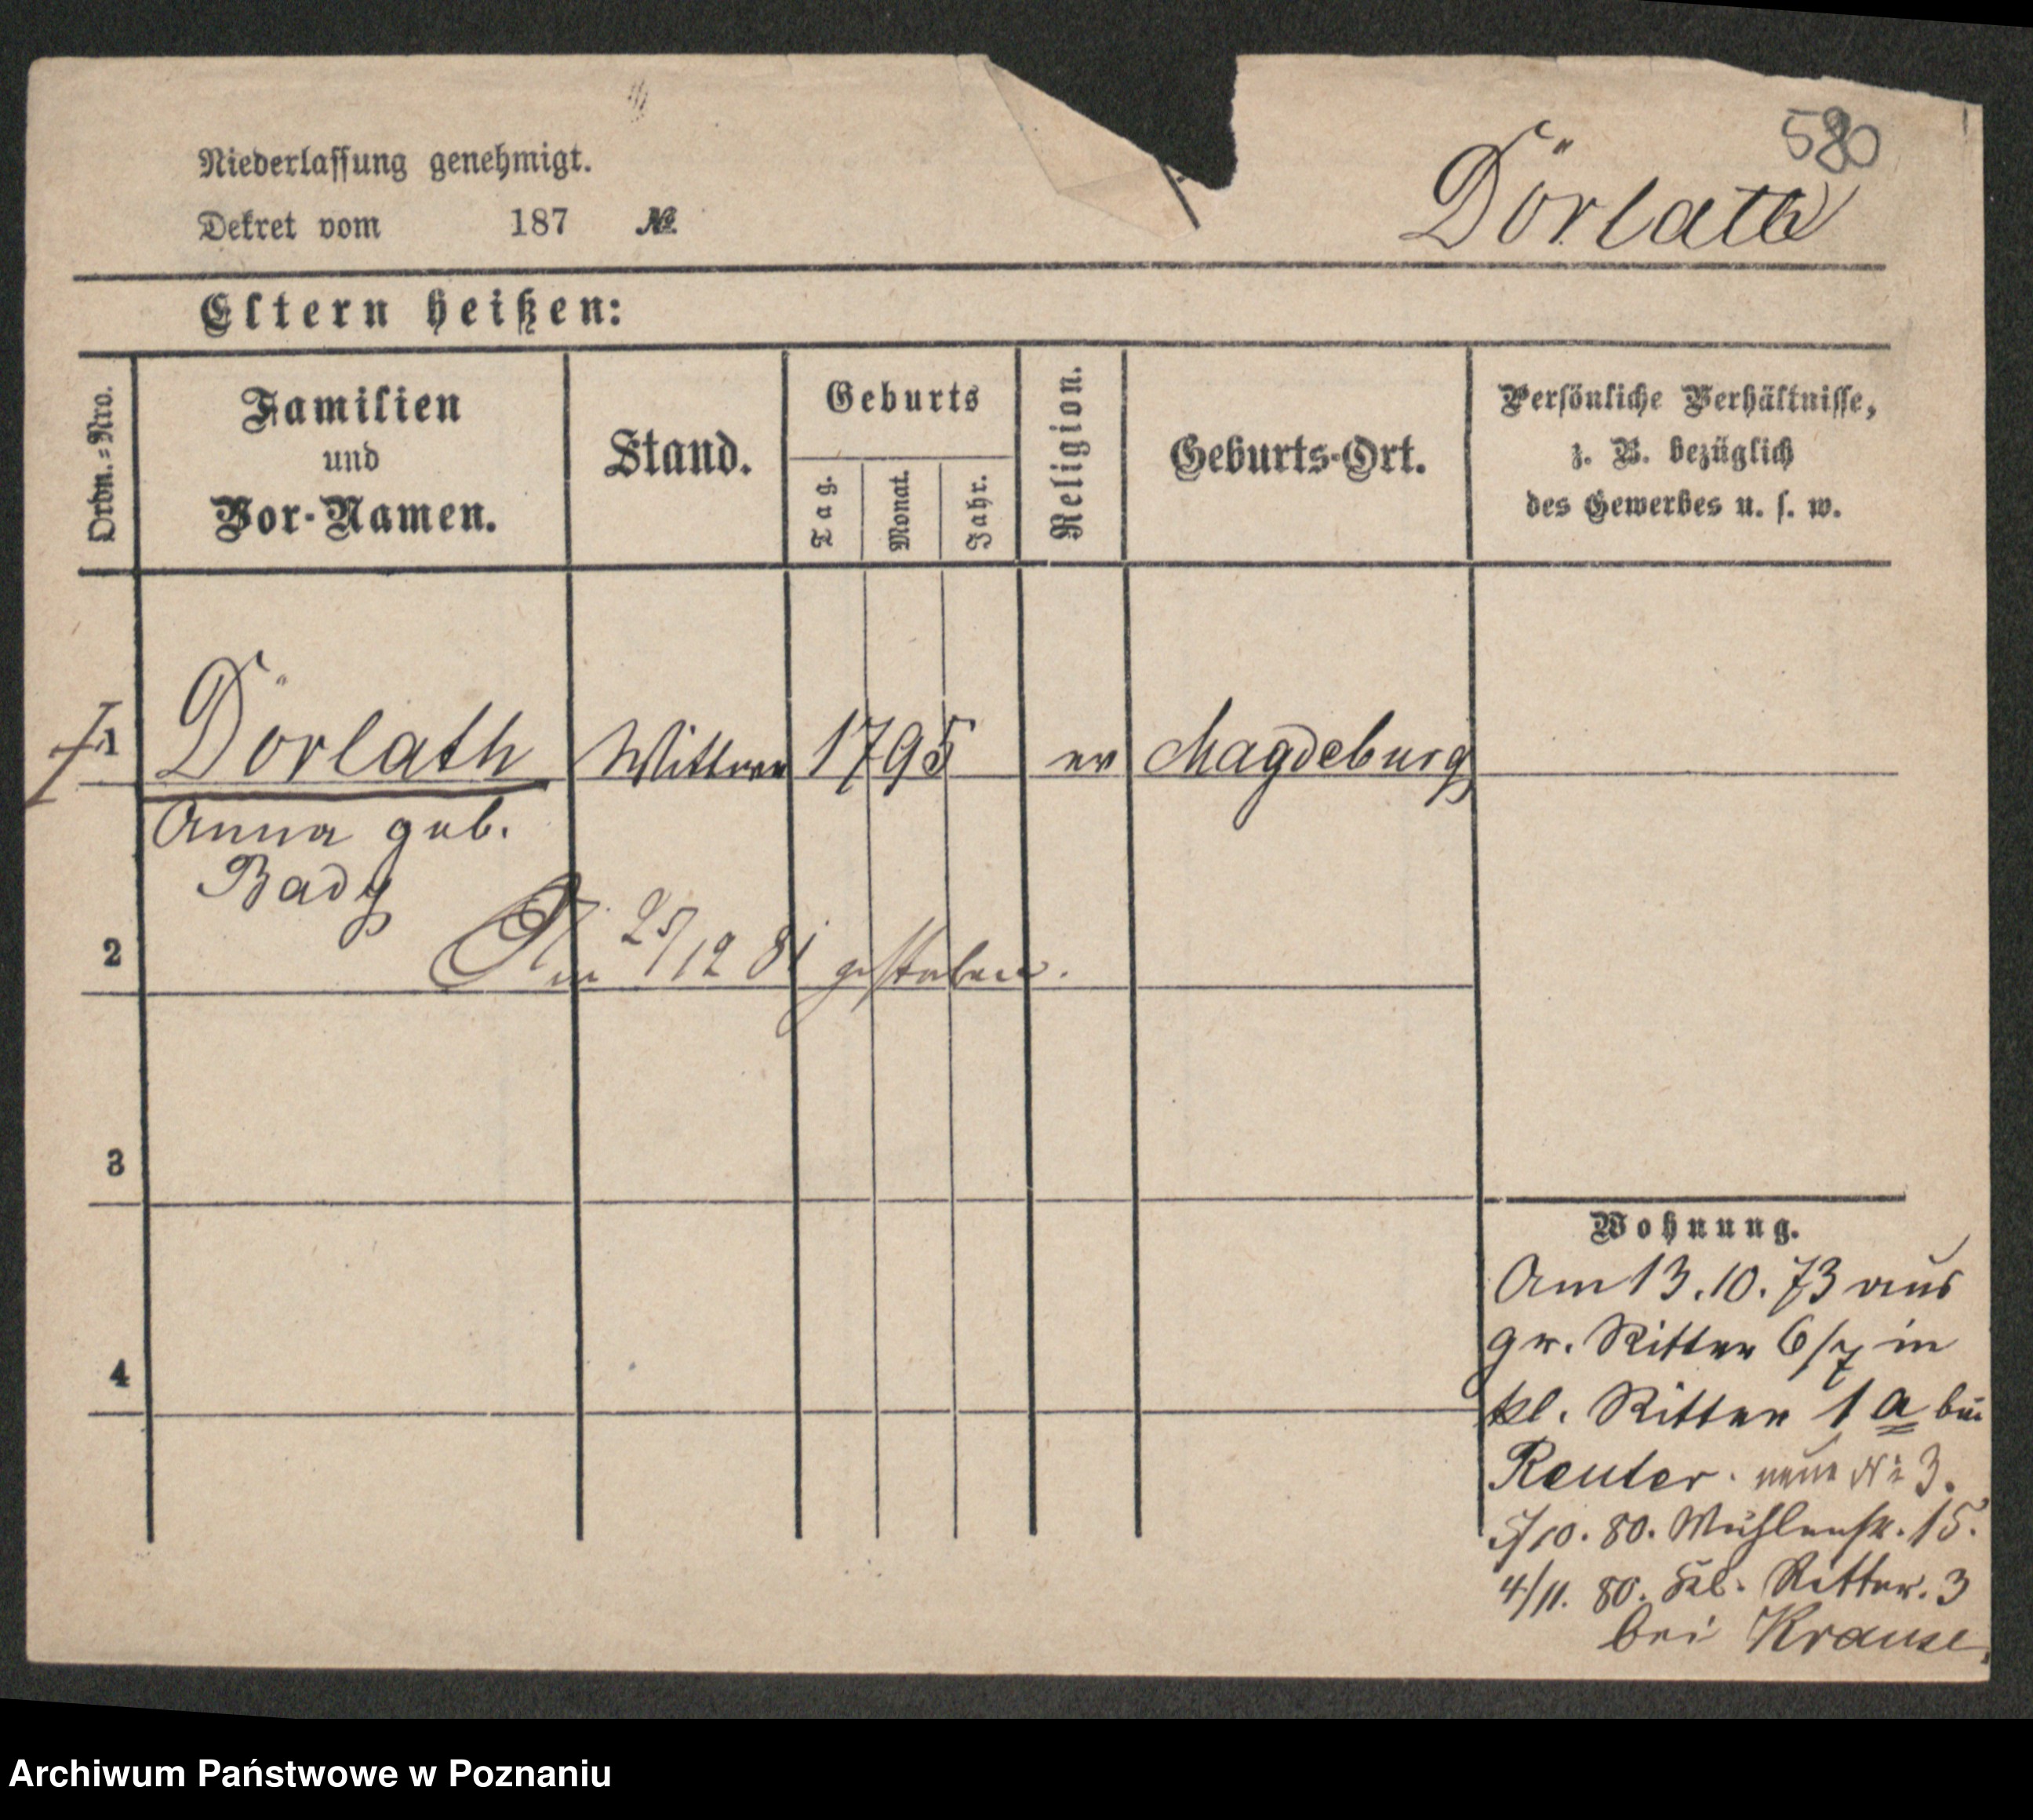 580
Niederlassung genehmigt.
Dekret vom 187 №
Dörlath
Eltern heißen:
Ordn.-Nro.
Familien und Vor-Namen.
Stand.
Geburts
Tag.
Monat.
Jahr.
Religion.
Geburts-Ort.
Persönliche Verhältnisse,
z. B. bezüglich
des Gewerbes u. s. w.
1 Dörlath Wittwe 1795 ev Magdeburg
Anna geb.
Bady
2
Am 25/12 81 gestorben.
3
4
Wohnung.
Am 13.10.73 aus
gr. Ritter 6/7 in
kl. Ritter 1 a bei
Reuter. neue № 3.
5/10. 80. Mühlenstr. 15.
4/11. 80. Kl. Ritter. 3
bei Krause.
Archiwum Państwowe w Poznaniu